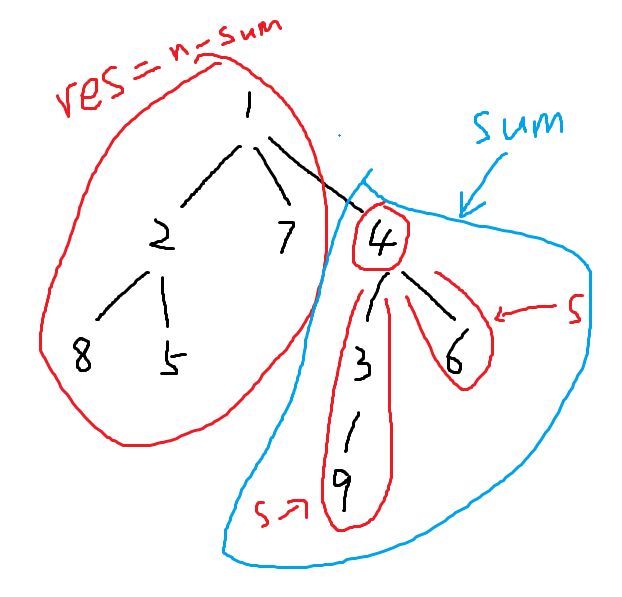 res = n - sum
1
sum
2 7 4
s
8 5 3 6
9
s